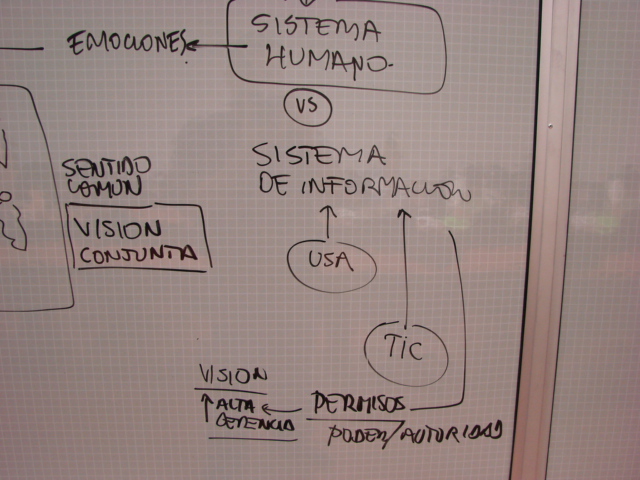 SISTEMA
HUMANO.
EMOCIONES
VS
SISTEMA
DE INFORMACION
SENTIDO
COMUN
VISION
CONJUNTA
USA
TIC
VISION
ALTA
GERENCIA
PERMISOS
PODER/AUTORIDAD